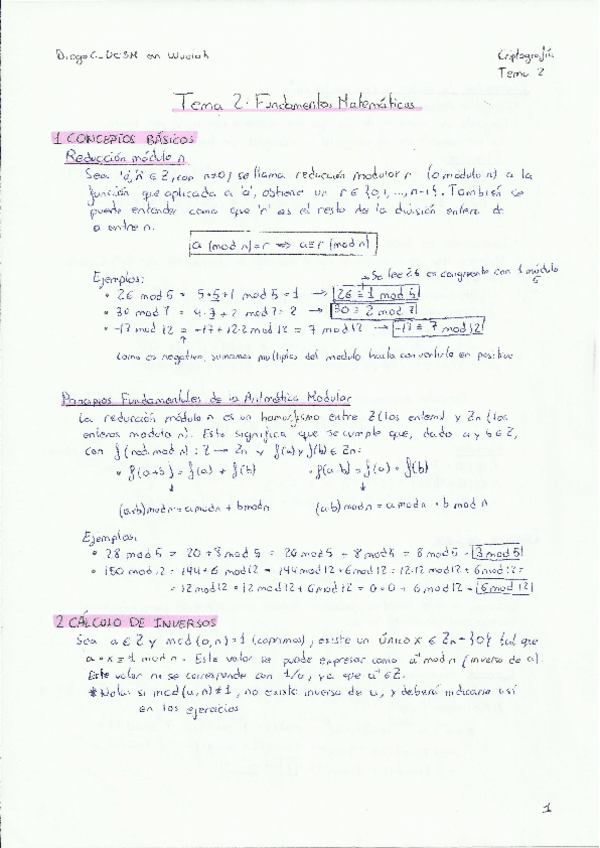 Diego C_UC3M en Wuolah
Criptografía
Tema 2
Tema 2: Fundamentos Matemáticos
1 CONCEPTOS BÁSICOS
Reducción módulo n
Sea 'a', 'n' ∈ Z, con n≠0, se llama reducción modulo r (o módulo n) a la
función que aplicada a 'a', obtiene un r ∈ {0,1,...,n-1}. También se
puede entender como que 'r' es el resto de la división entera de
a entre n.
a (mod n) = r ⟺ a ≡ r (mod n)
Ejemplos:
→ Se lee 26 es congruente con 1 módulo
5
• 26 mod 5 = 5·5+1 mod 5 = 1 → 26 ≡ 1 mod 5
• 30 mod 7 = 4·7+2 mod 7 = 2 → 30 ≡ 2 mod 7
• -17 mod 12 = -17+12·2 mod 12 = 7 mod 12 → -17 ≡ 7 mod 12
Como es negativo, sumamos multiplos del modulo hasta convertirlo en positivo
Principios Fundamentales de la Aritmética Modular
La reducción módulo n es un homomorfismo entre Z (los enteros) y Zn (los
enteros modulo n). Esto significa que se cumple que, dado a y b ∈ Z,
con f (red. mod n): Z → Zn y f(a) y f(b) ∈ Zn:
• f(a+b) = f(a) + f(b) • f(a·b) = f(a) · f(b)
↓ ↓
(a+b) mod n = a mod n + b mod n (a·b) mod n = a mod n · b mod n
Ejemplos:
• 28 mod 5 = 20+8 mod 5 = 20 mod 5 + 8 mod 5 = 8 mod 5 = 3 mod 5
• 150 mod 12 = 144+6 mod 12 = 144 mod 12 + 6 mod 12 = 12·12 mod 12 + 6 mod 12 =
= 12 mod 12 · 12 mod 12 + 6 mod 12 = 0·0 + 6 mod 12 = 6 mod 12
2 CÁLCULO DE INVERSOS
Sea a ∈ Z y mcd (a,n)=1 (coprimos), existe un único x ∈ Zn-{0} tal que
a·x ≡ 1 mod n. Este valor se puede expresar como a⁻¹ mod n (inverso de a).
Este valor no se corresponde con 1/a, ya que a⁻¹ ∈ Z.
*Nota: si mcd (a,n) ≠ 1, no existe inverso de a, y deberá indicarse así
en los ejercicios
1